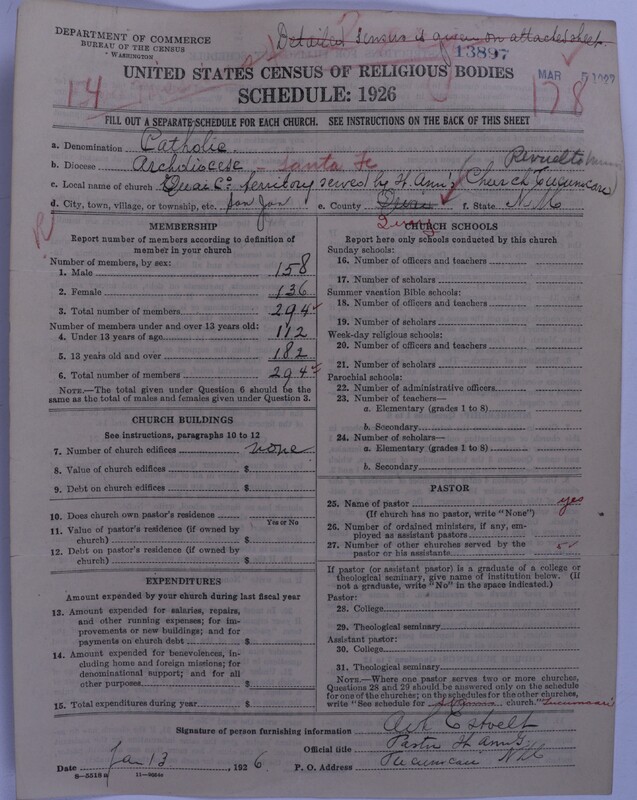 DEPARTMENT OF COMMERCE
BUREAU OF THE CENSUS
WASHINGTON
Detailed census is given on attached sheet.
13897
MAR 5 1927
UNITED STATES CENSUS OF RELIGIOUS BODIES
SCHEDULE: 1926
14
178
FILL OUT A SEPARATE SCHEDULE FOR EACH CHURCH. SEE INSTRUCTIONS ON THE BACK OF THIS SHEET
a. Denomination Catholic
b. Diocese Archdiocese - Santa Fe
c. Local name of church Quai Co. territory served by St. Ann's Church (Tucumcari)
d. City, town, village, or township, etc. San Jon e. County Quay f. State N. M.
MEMBERSHIP
Report number of members according to definition of member in your church
Number of members, by sex:
1. Male 158
2. Female 136
3. Total number of members 294
Number of members under and over 13 years old:
4. Under 13 years of age 112
5. 13 years old and over 182
6. Total number of members 294
NOTE.—The total given under Question 6 should be the same as the total of males and females given under Question 3.
CHURCH BUILDINGS
See instructions, paragraphs 10 to 12
7. Number of church edifices none
8. Value of church edifices $
9. Debt on church edifices $
10. Does church own pastor's residence
Yes or No
11. Value of pastor's residence (if owned by church) $
12. Debt on pastor's residence (if owned by church) $
EXPENDITURES
Amount expended by your church during last fiscal year
13. Amount expended for salaries, repairs, and other running expenses; for improvements or new buildings; and for payments on church debt $
14. Amount expended for benevolences, including home and foreign missions; for denominational support; and for all other purposes $
15. Total expenditures during year $
CHURCH SCHOOLS
Report here only schools conducted by this church
Sunday schools:
16. Number of officers and teachers
17. Number of scholars
Summer vacation Bible schools:
18. Number of officers and teachers
19. Number of scholars
Week-day religious schools:
20. Number of officers and teachers
21. Number of scholars
Parochial schools:
22. Number of administrative officers
23. Number of teachers—
a. Elementary (grades 1 to 8)
b. Secondary
24. Number of scholars—
a. Elementary (grades 1 to 8)
b. Secondary
PASTOR
25. Name of pastor yes
(If church has no pastor, write "None")
26. Number of ordained ministers, if any, employed as assistant pastors
27. Number of other churches served by the pastor or his assistants 5
If pastor (or assistant pastor) is a graduate of a college or theological seminary, give name of institution below. (If not a graduate, write "No" in the space indicated.)
Pastor:
28. College
29. Theological seminary
Assistant pastor:
30. College
31. Theological seminary
NOTE.—Where one pastor serves two or more churches, Questions 28 and 29 should be answered only on the schedule for one of the churches; on the schedules for the other churches, write "See schedule for St Anns church." Tucumcari
Signature of person furnishing information
Official title Pastor St Ann's
Date Jan 13, 1926 P. O. Address Tucumcari N M
8-5518 a